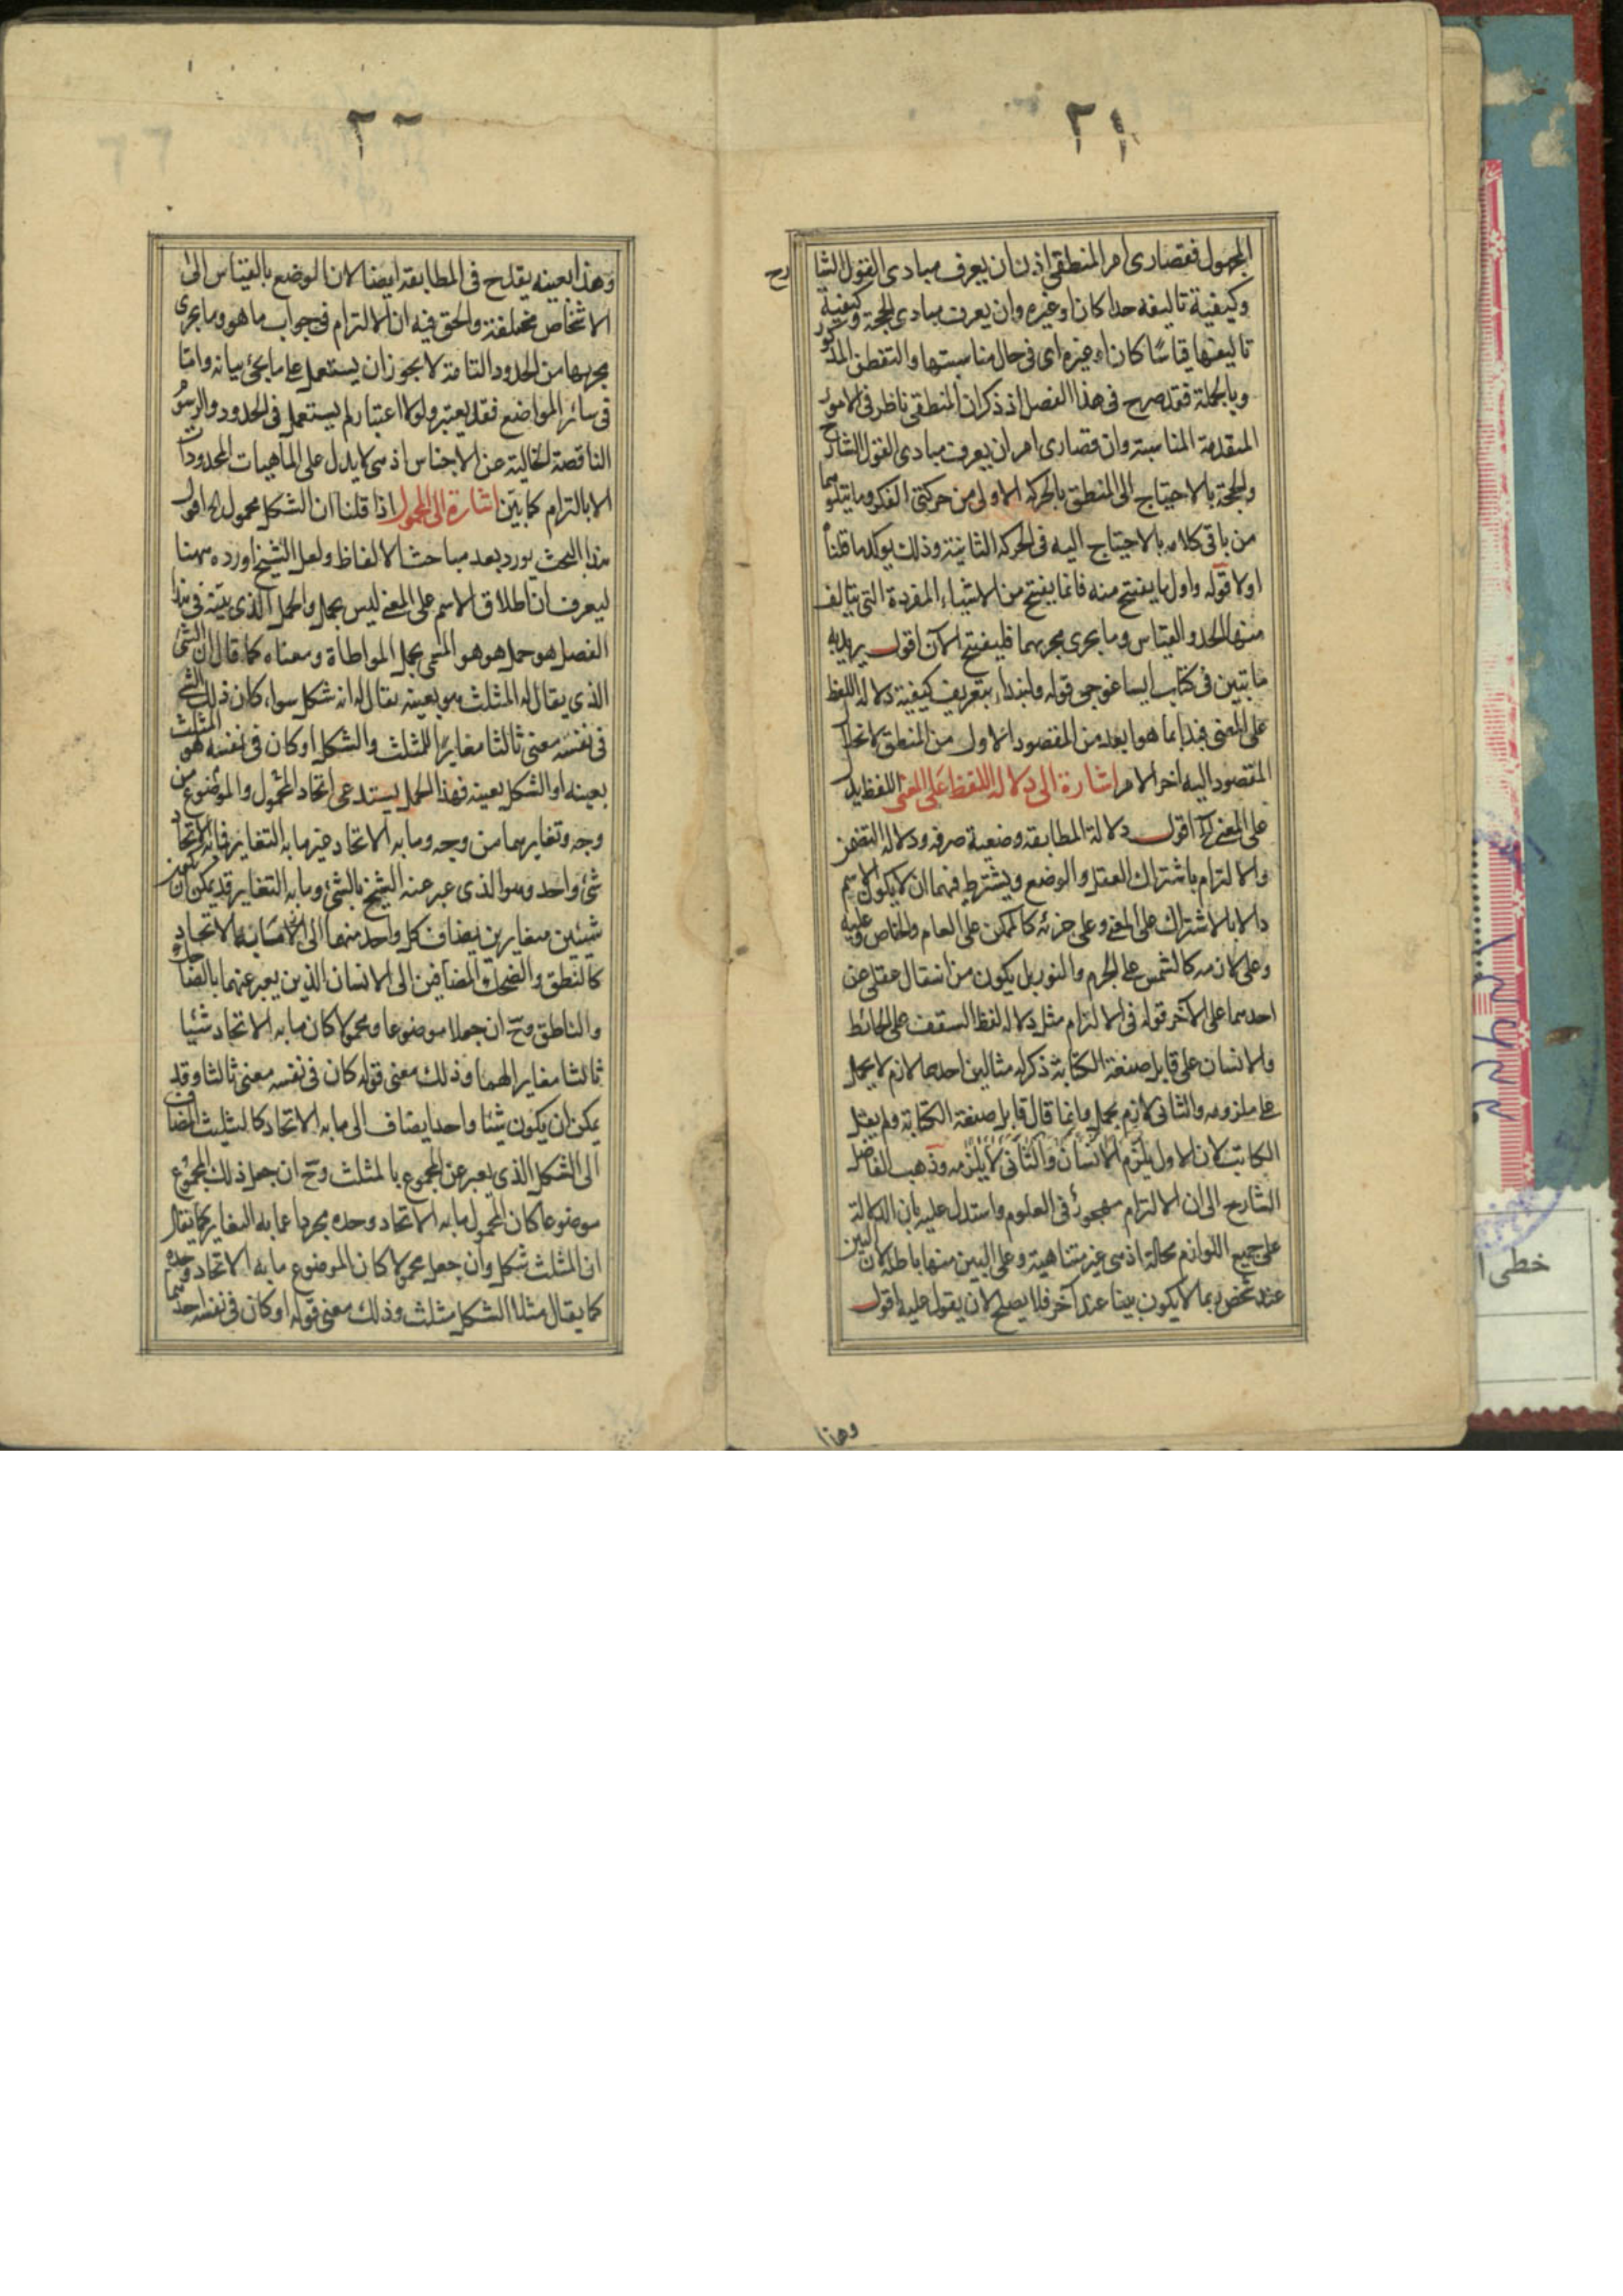 ٢١
المجهول فقصارى امر المنطقى اذن ان يعرف مبادى القول الشا
رح
وكيفية تاليفه حدا كان او غيره وان يعرف مبادى الحجة وكيفية
تاليفها قياسًا كان او غيره اى فى حال مناسبتها والتفطن المذكور
وبالجملة فقد صرح فى هذا الفصل اذ ذكر ان المنطقى ناظر فى الامور
المتقدمة المناسبة وان قصارى امره ان يعرف مبادى القول الشارح
والحجة بالاحتياج الى المنطق بالحركة الاولى من حركتى الفكر وما يتلوهما
من باقى كلامه بالاحتياج اليه فى الحركة الثانية وذلك يوكد ما قلناه
اولا قوله واول ما يفتتح منه فانما يفتتح من الاشياء المفردة التى يتالف
منها الحد والقياس وما يجرى مجريهما فليفتتح الآن اقول يريد به
ما تبين فى كتاب ايساغوجى قوله ولنبدأ بتعريف كيفية دلالة اللفظ
على المعنى فبدأ بما هو ابعد من المقصود الاول من المنطق لانحلال
المقصود اليه اخر الامر اشارة الى دلالة اللفظ على المعنى اللفظ يدل
على المعنى الخ اقول دلالة المطابقة وضعية صرفه ودلالة التضمن
والالتزام باشتراك العقل والوضع ويشترط فيهما ان لا يكون الاسم
دالا بالاشتراك على المعنى وعلى جزئه كالممكن على العام والخاص وعليه
وعلى لازمه كالشمس على الجرم والنور بل يكون من انتقال عقلى عن
احدهما على الآخر قوله فى الالتزام مثل دلالة لفظ السقف على الحائط
والانسان على قابل صنعة الكتابة ذكر له مثالين احدهما لازم لا يحمل
على ملزومه والثانى لازم يحمل وانما قال قابل صنعة الكتابة ولم يقل
الكاتب لان الاول يلزم الانسان والثانى لا يلزمه وذهب الفاضل
الشارح الى ان الالتزام مهجور فى العلوم واستدل عليه بان الدلالة
على جميع اللوازم محالة اذ هى غير متناهية وعلى البين منها باطلة لان البين
عند شخص ربما لا يكون بينا عند آخر فلا يصلح لان يقول عليه اقول
وهذا
٢٢
وهذا بعينه يقدح فى المطابقة ايضا لان الوضع بالقياس الى
الاشخاص مختلفة والحق فيه ان الالتزام فى جواب ما هو وما يجرى
مجريها من الحدود التامة لا يجوز ان يستعمل على ما يجئ بيانه واما
فى سائر المواضع فقد يعتبر ولولا اعتباره لم يستعمل فى الحدود والرسوم
الناقصة الخالية عن الاجناس اذ هى لا يدل على الماهيات المحدودات
الا بالتزام كما بين اشارة الى المحمول اذا قلنا ان الشكل محمول الخ اقول
هذا البحث يورد بعد مباحث الالفاظ ولعل الشيخ اورده ههنا
ليعرف ان اطلاق الاسم على المعنى ليس بحمل والحمل الذى بينه فى هذا
الفصل هو حمل هو هو المسمى بحمل المواطأة ومعناه كما قال ان الشئ
الذى يقال له المثلث هو بعينه يقال له انه شكل سواء كان ذلك الشئ
فى نفسه معنى ثالثا مغايرًا للمثلث والشكل او كان فى نفسه هو المثلث
بعينه او الشكل بعينه فهذا الحمل يستدعى اتحاد المحمول والموضوع من
وجه وتغايرهما من وجه وما به الاتحاد غير ما به التغاير فما به الاتحاد
شئ واحد وهو الذى عبر عنه الشيخ بالشئ وما به التغاير قد يمكن ان يكون
شيئين متغايرين يضاف كل واحد منهما الى ما به الاتحاد
كالنطق والضحك المضافين الى الانسان الذين يعبر عنهما بالضاحك
والناطق وح ان جعلا موضوعا ومحمولا كان ما به الاتحاد شيئا
ثالثا مغايرا لهما وذلك معنى قوله كان فى نفسه معنى ثالثا وقد
يمكن ان يكون شيئا واحدا يضاف الى ما به الاتحاد كالتثليث المضاف
الى الشكل الذى يعبر عن المجموع بالمثلث وح ان جعل ذلك المجموع
موضوعا كان المحمول ما به الاتحاد وحده مجردا عما به التغاير كما يقال
ان المثلث شكل وان جعل محمولا كان الموضوع ما به الاتحاد وحده
كما يقال مثلا الشكل مثلث وذلك معنى قوله او كان فى نفسه احدهما
خطى